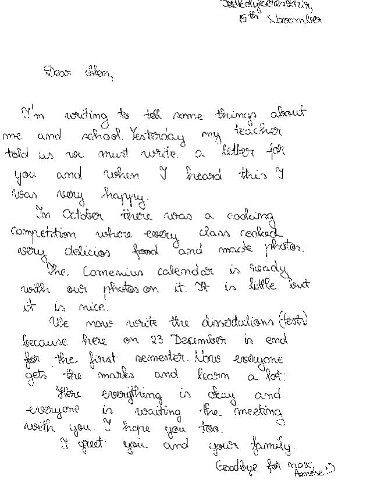 15th November
Dear Glen,
I'm writing to tell some things about
me and school. Yesterday my teacher
told us we must write a letter for
you and when I heard this I
was very happy.
In October there was a cooking
competition where every class cooked
very delicios food and made photos.
The Comenius calendar is ready
with our photos on it. It is little but
it is nice.
We now write the dissertations (tests)
because here on 23 December is end
for the first semester. Now everyone
gets the marks and learn a lot.
Here everything is okay and
everyone is waiting the meeting
with you. I hope you too.
I greet you and your family.
Goodbye for now,